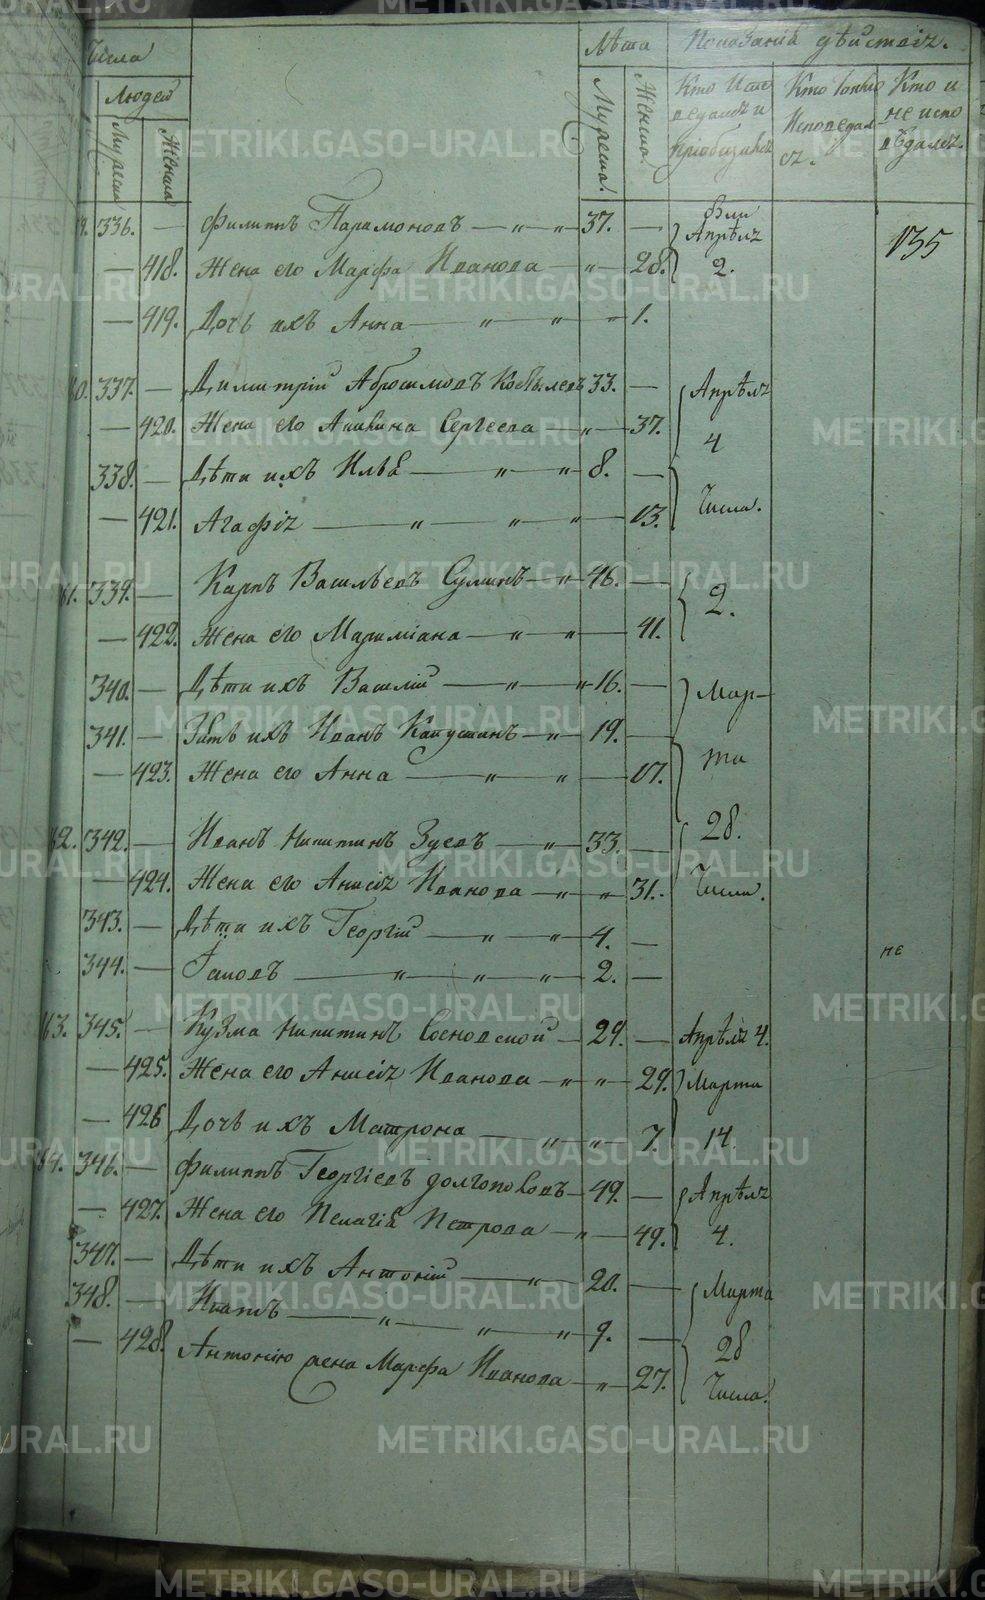 Числа
Людей
Мужеска
Женска
Лѣта
Мужеска.
Женска
Показанія дѣйствія.
Кто Испо
ведался и
пріобщился
Кто токмо
Исповедал
ся.
Кто и
не испо
вѣдался.
135
336. — Филиппъ Парамоновъ — 37. — были Апрѣля
— 418. Жена его Марфа Иванова — 28. 2.
— 419. Дочь ихъ Анна — 1.
337. — Димитрій Абросимовъ Кобылевъ 33. — Апрѣля
— 420. Жена его Акилина Сергеева — 37. 4
338. — Дѣти ихъ Илья — 8. —
— 421. Агафія — 13. Числа.
339. — Карпъ Васильевъ Сулинъ — 46. — 2.
— 422. Жена его Маремiана — 41.
340. — Дѣти ихъ Василій — 16. — Мар-
341. — Зять ихъ Иванъ Капустинъ — 19. — та
— 423. Жена его Анна — 17.
62. 342. — Иванъ Никитинъ Зуевъ — 33. — 28.
— 424. Жена его Анисія Иванова — 31. Числа.
343. — Дѣти ихъ Георгій — 4. —
344. — Іаковъ — 2. — не
63. 345. — Кузма Никитинъ Сосновской — 29. — Апрѣля 4.
— 425. Жена его Анисія Иванова — 29. Марта
— 426 Дочь ихъ Матрона — 7. 14.
64. 346. — Филиппъ Георгіевъ Долгополовъ — 49. — Апрѣля
— 427. Жена его Пелагія Петрова — 49. 4.
347. — Дѣти ихъ Антоній — 20. — Марта
348. — Игнатъ — 9. — 28
— 428. Антонію жена Марфа Иванова — 27. Числа.
METRIKI.GASO-URAL.RU